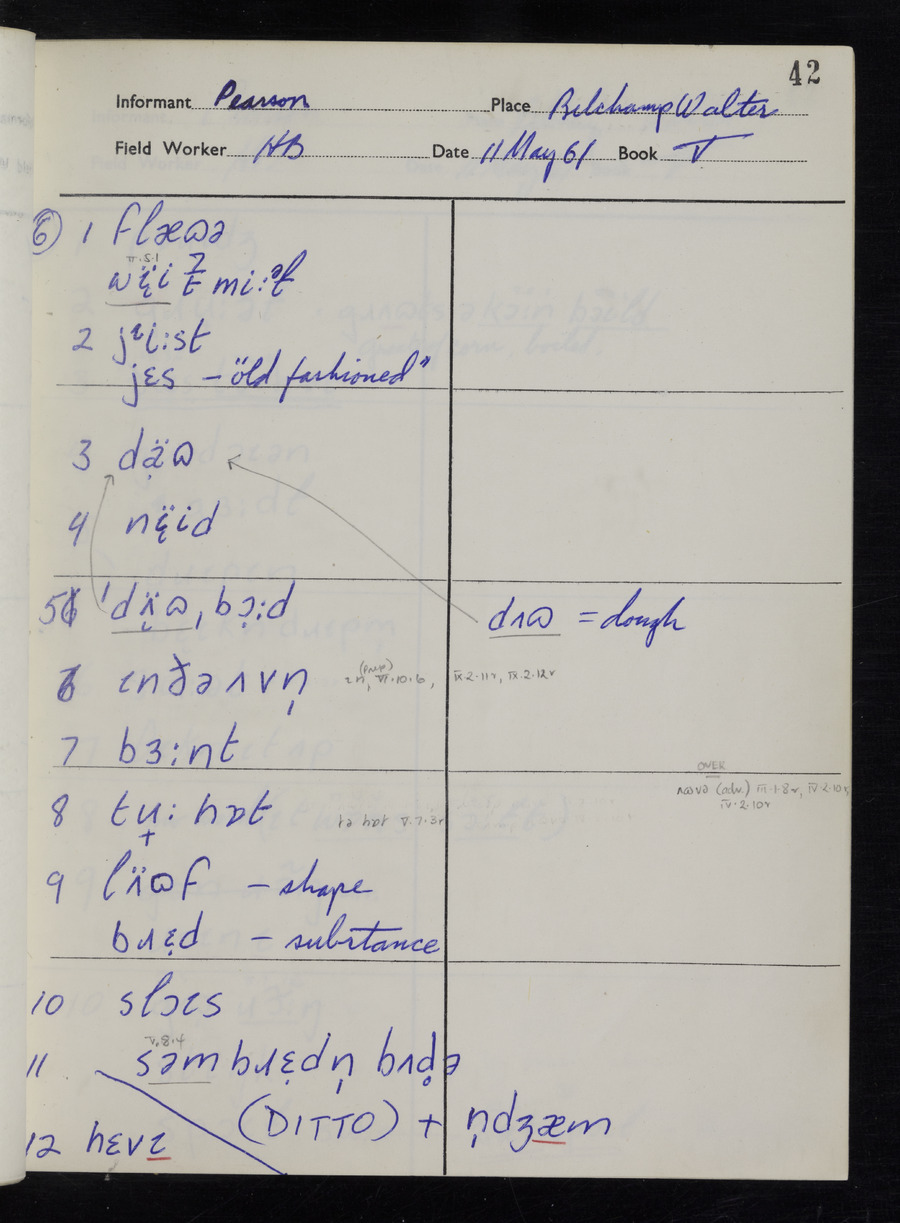 42
Informant Pearson Place Belchamp Walter
Field Worker HB Date 11 May 61 Book V
⑥ 1 flæɷə
V.5.1
mi:ət
2 jᶦi:st
jɛs – "old fashioned"
3 dæ̣̈ɷ
4 nɛ̣̈id
5 ˈdʌ̣̈ɷ, bɔ̣:d dʌɷ = dough
6 ɩnðə ʌvn̩ (prep) ɩn, VI.10.6, IX.2.11r, IX.2.12r
7 bɜ:nt
OVER
8 tʉ̟: hɒt tə hɒt V.7.3r ʌɷvə (adv.) III.1.8r, IV.2.10r,
IV.2.10r
9 lʌ̈ɷf – shape
bɹɛ̣d – substance
10 slɔɩs
V.8.4
11 səm bɹɛ̣dn̩ bʌḍə
(DITTO) + n̩dʒæm
12 hɛvɩ